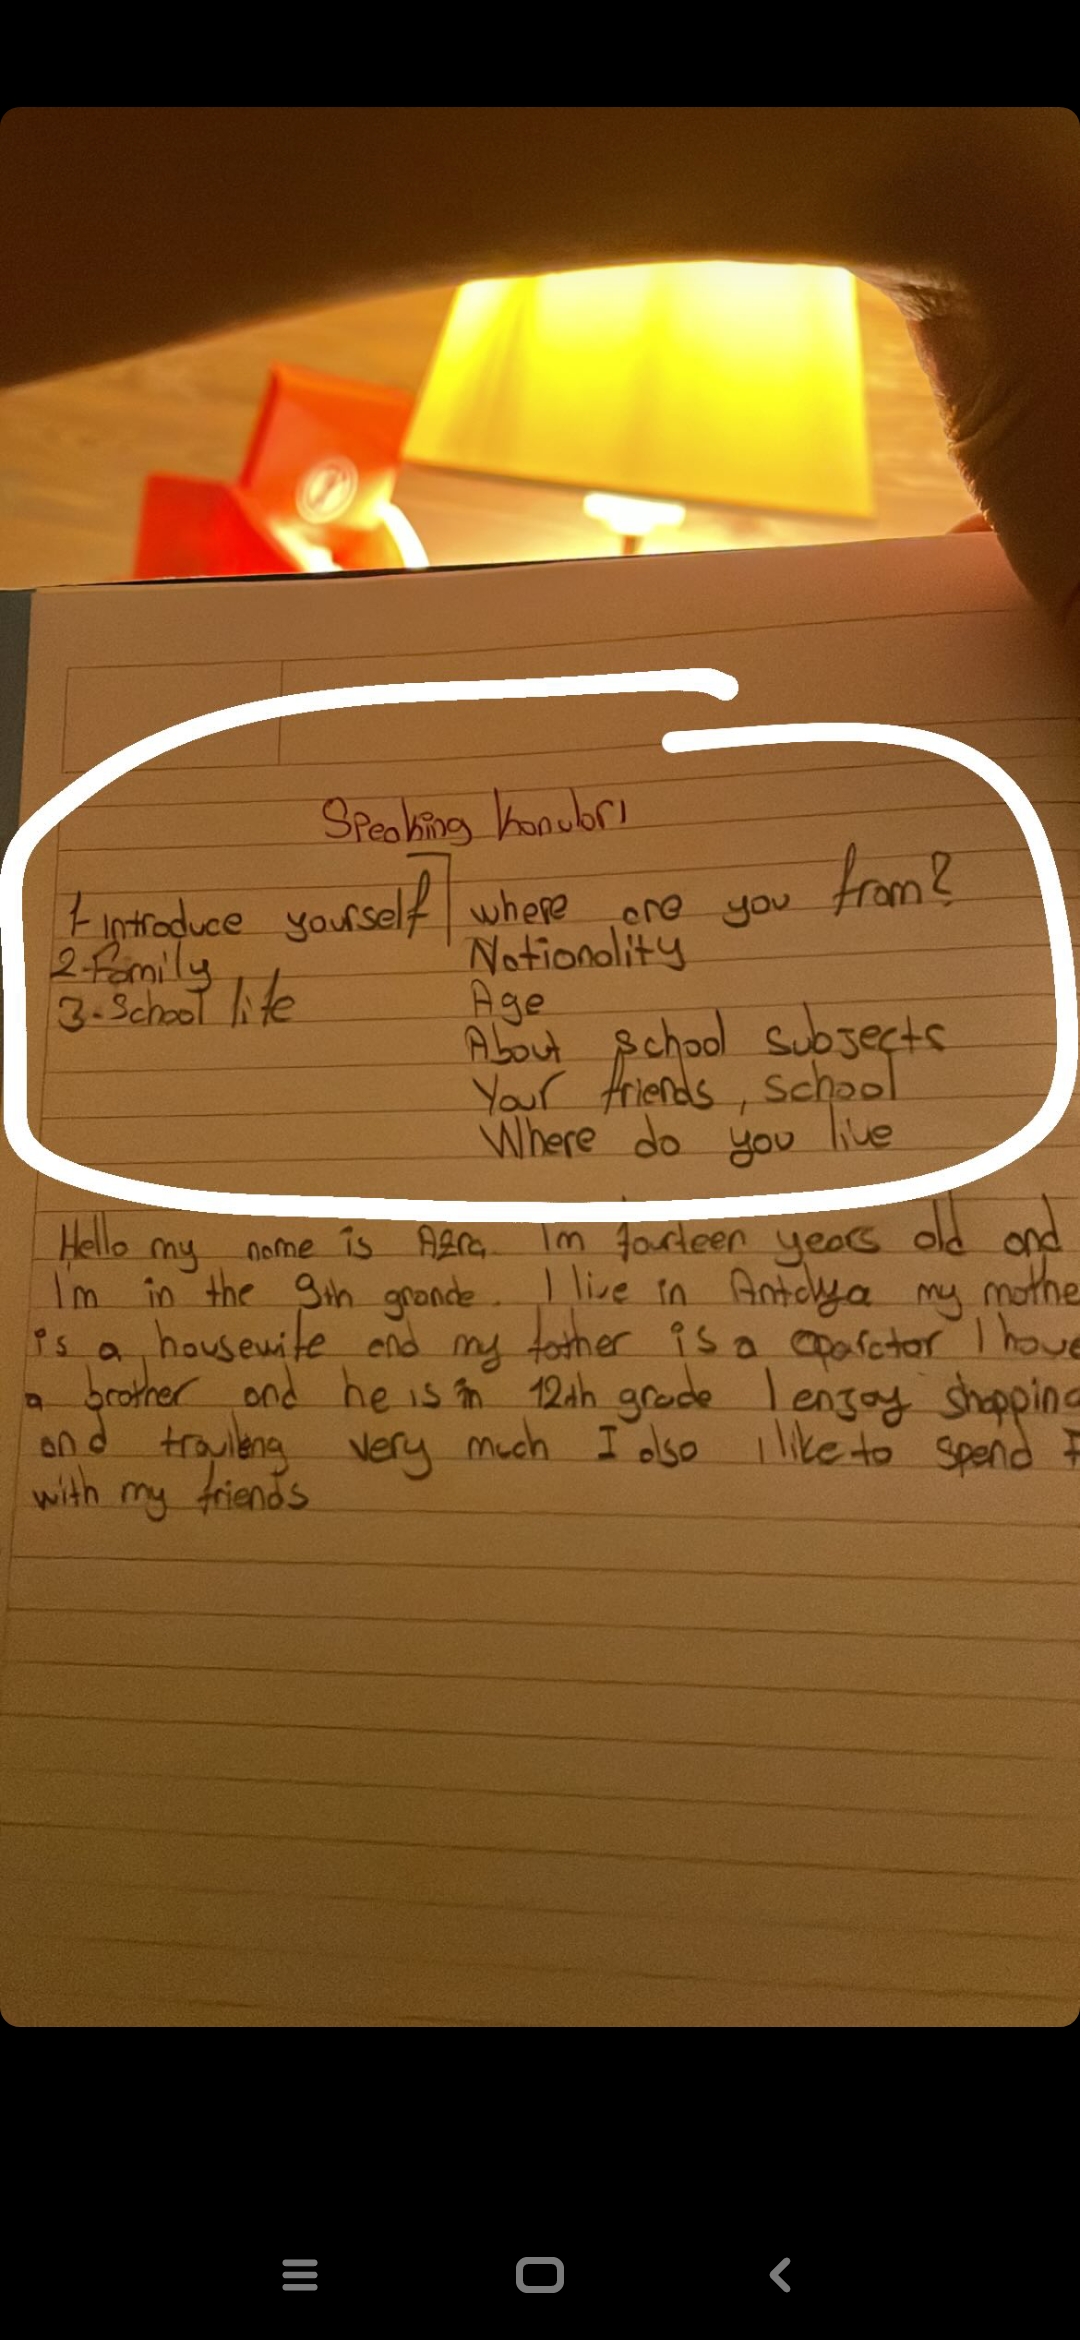 Speaking konuları
1- Introduce yourself where are you from?
2-Family Nationality
3-School life Age
About school subjects
Your friends, school
Where do you live
Hello my name is Azra Im fourteen years old and
I'm in the 9th grande. I live in Antalya my mothe
is a housewife and my father is a oparator I have
a brother and he is in 12th grade I enjoy shopping
and very much I also i like to spend
with my friends